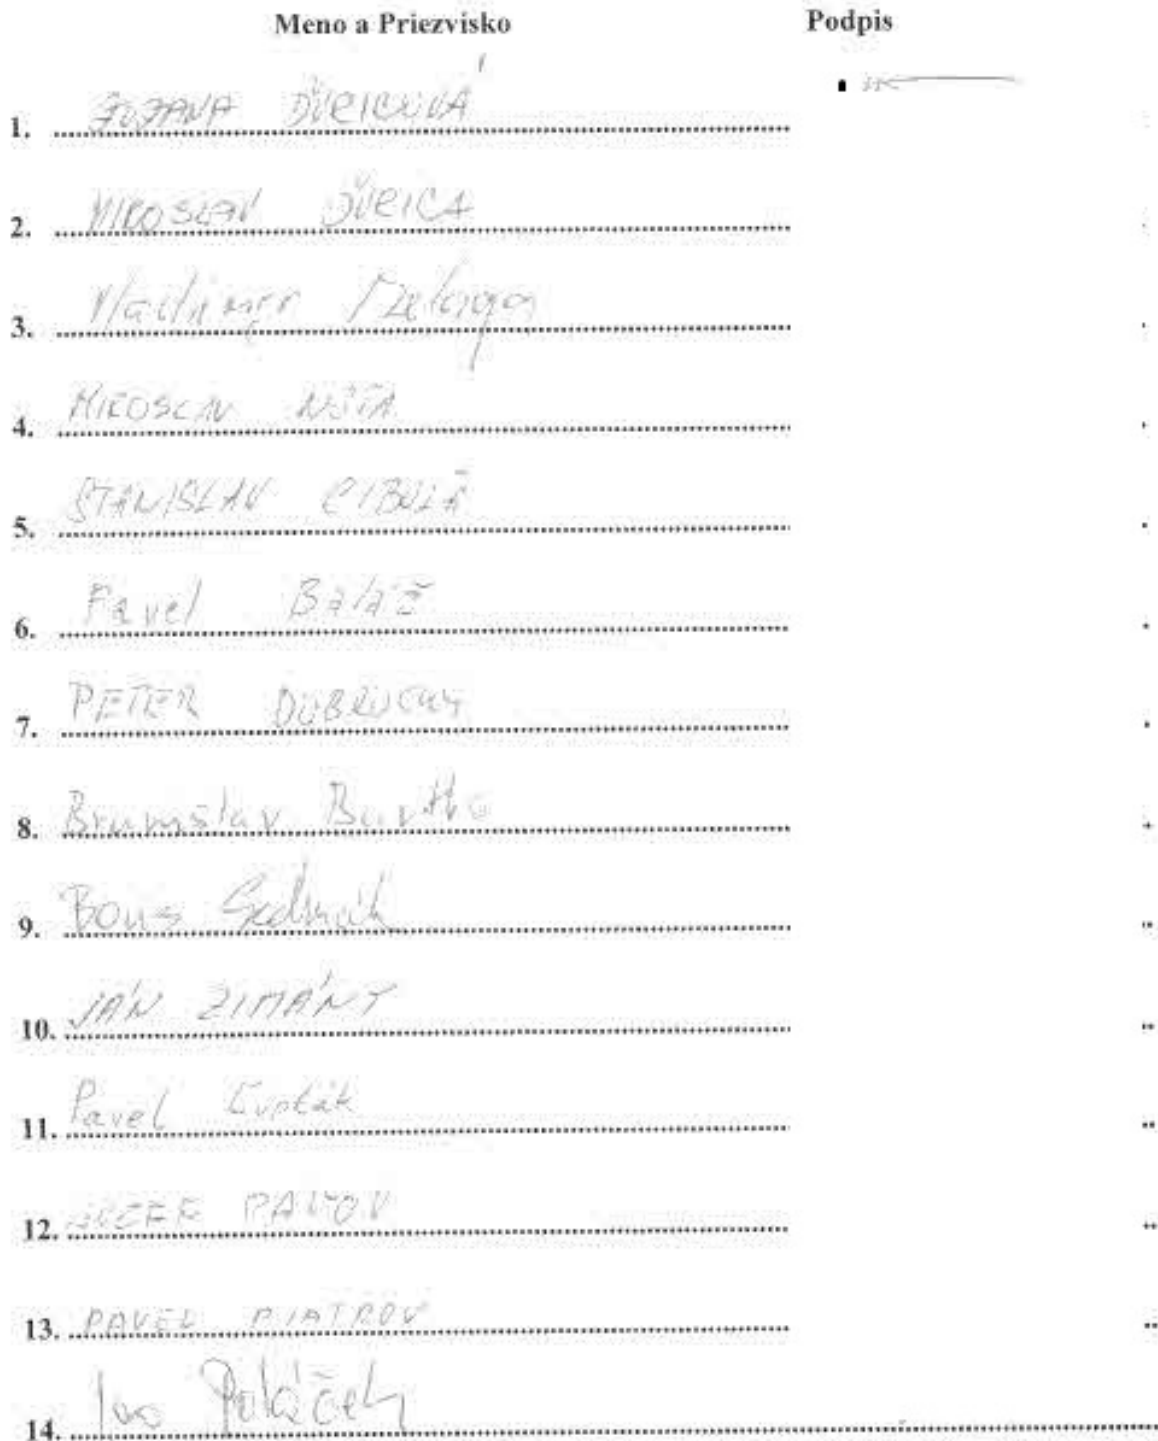 Meno a Priezvisko Podpis
1. ZUZANA ĎURICOVÁ
2. MIROSLAV ĎURICA
3.
4. MIROSLAV
5. STANISLAV CIBULA
6. Pavel Baláž
7. PETER DOBROCKÝ
8. Branislav
9. Boris Sedmák
10. JÁN ZIMÁNY
11. Pavel
12. JOZEF PAVOV
13. PAVEL PIATROV
14. Ivo Poláček